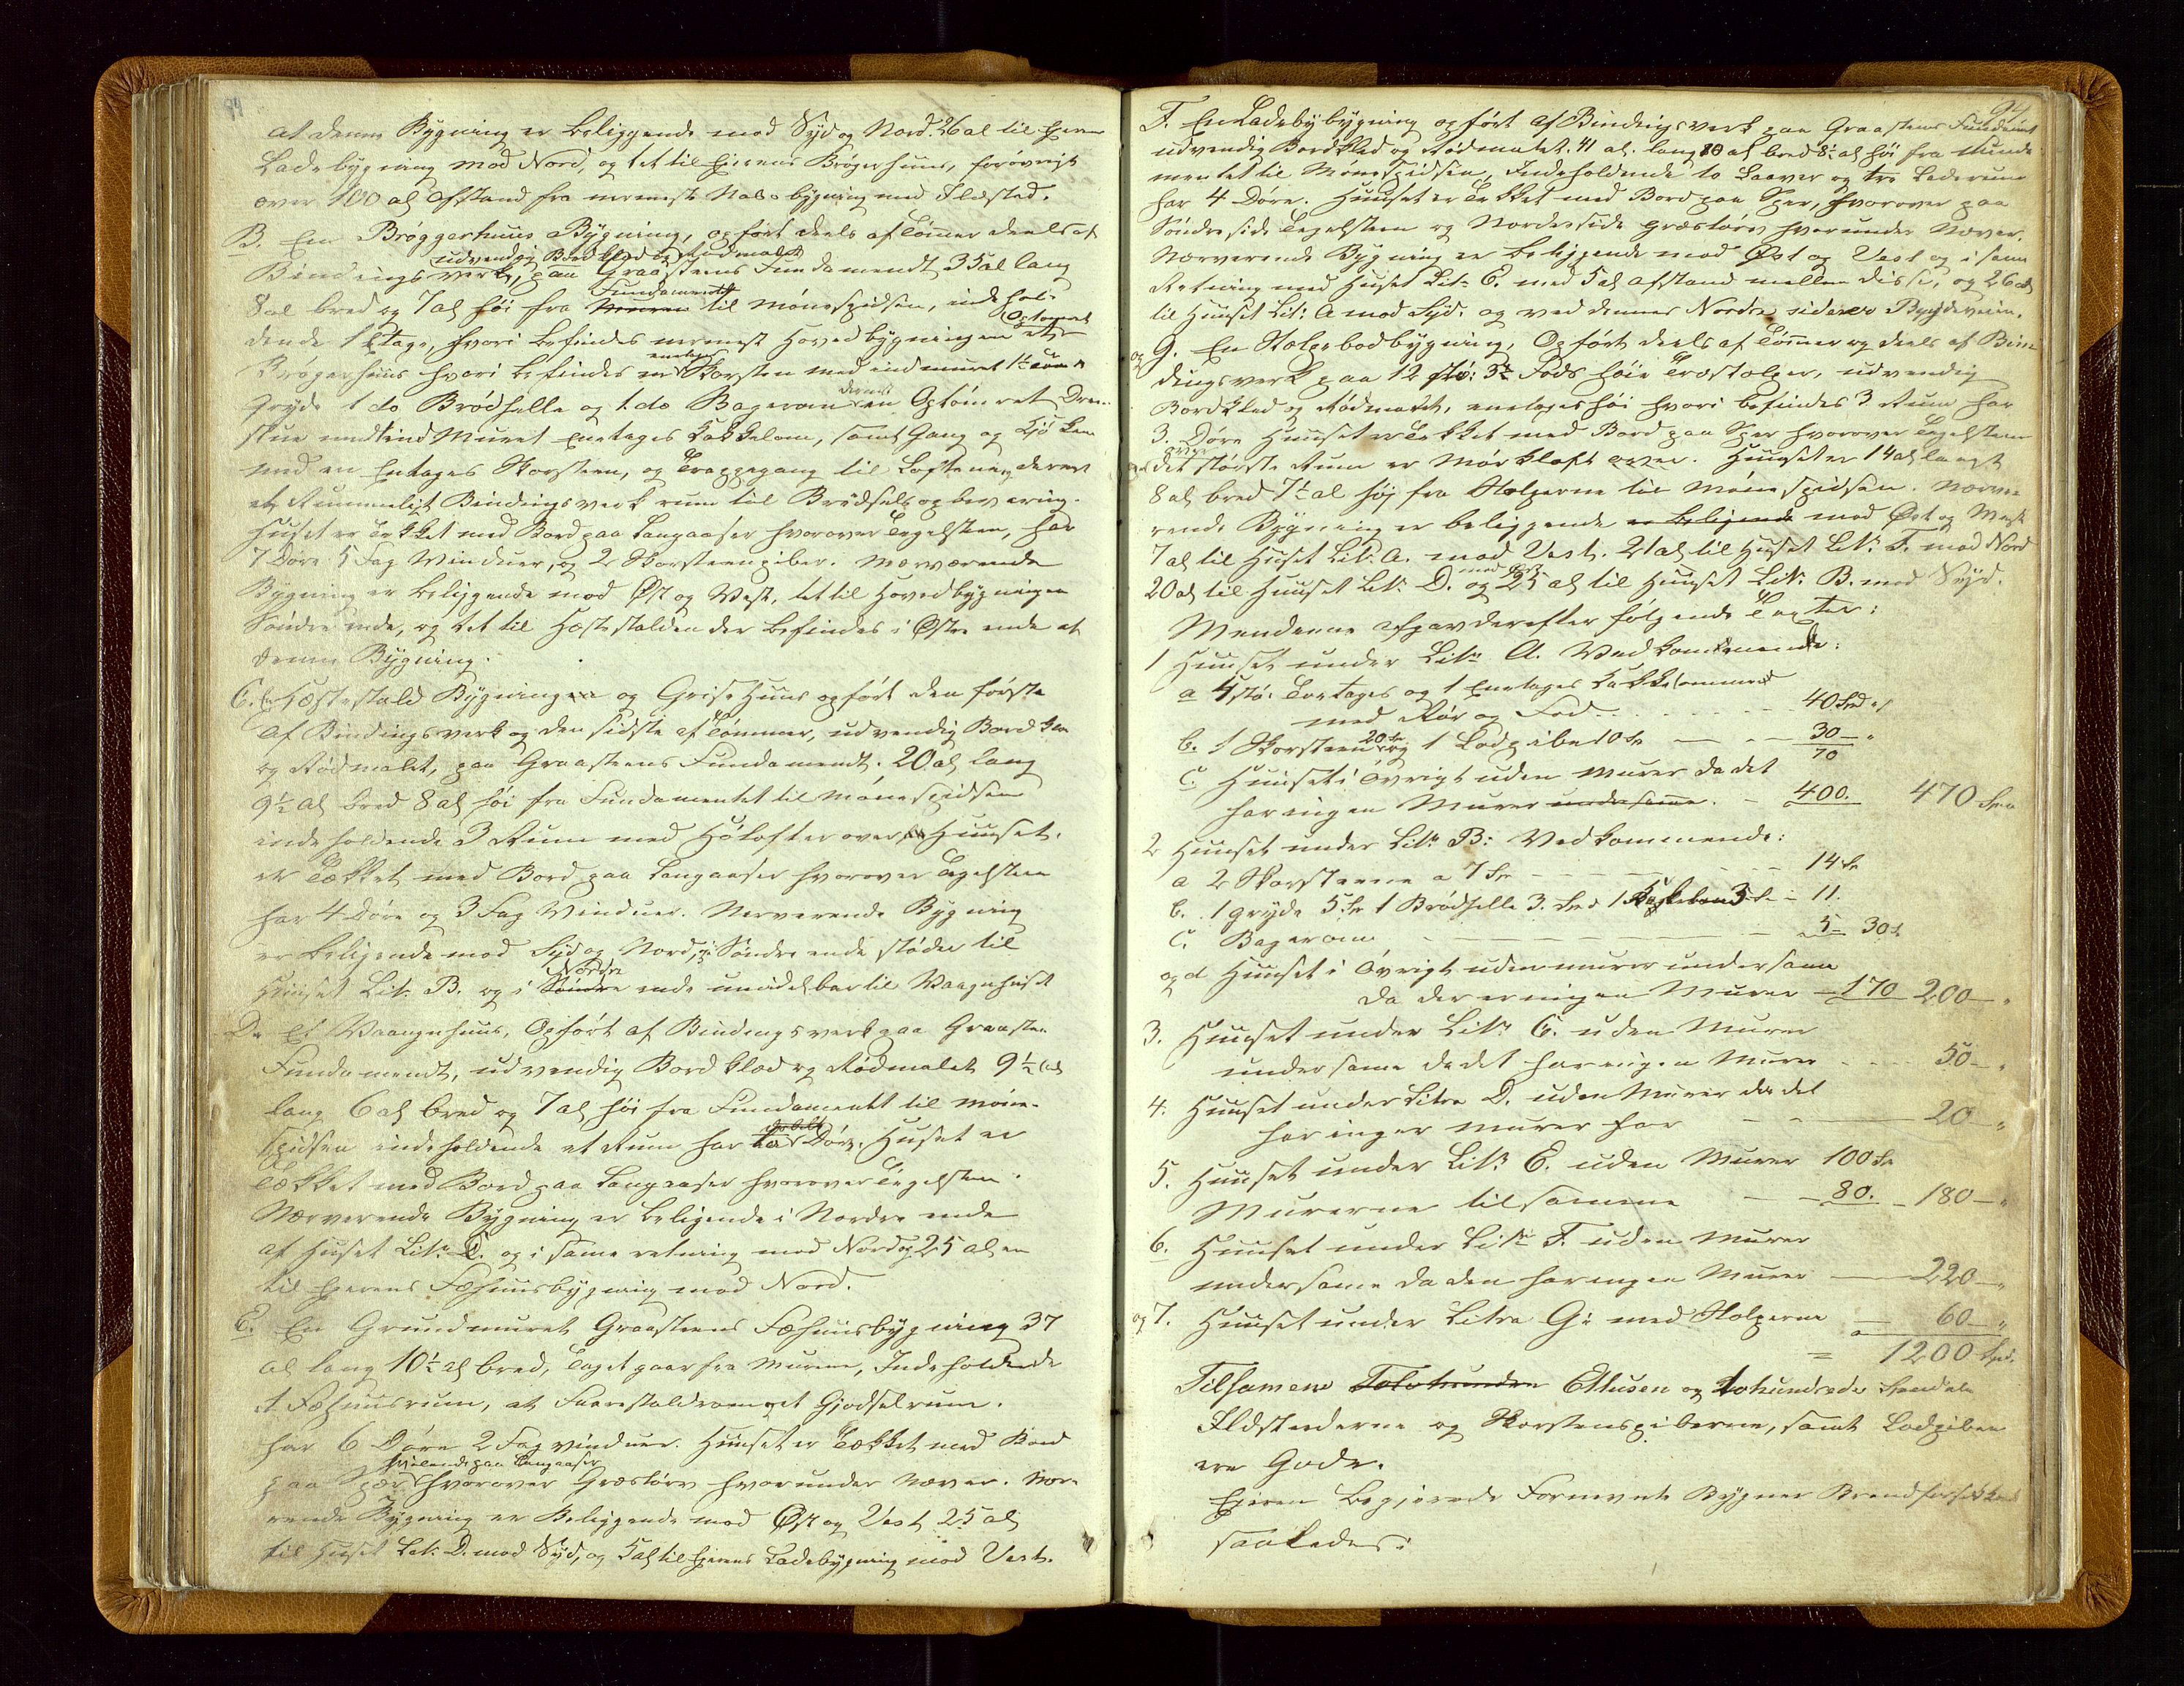 94
at denne Bygning er beliggende mod Syd og Nord. 26 al til Eierens
Ladebygning mod Nord, og tet til Eierens Brøgerhuus, forøvrigt
over 100 al Afstand fra nermeste Nabobygning med Ildsted.
B. En Brøggerhuus Bygning, opført deels af Tømer deels af
udvendig Bordklæd og Rødmalet
Bindingsverk, paa Graasteens Fundamendt 35 al lang
Fundamentet
8 al bred og 7 al høi fra Muren til Mønespidsen, indehol-
Optømret
dende 1 Etage, hvori befindes nermest Hovedbygningen et
enetages
Brøgerhuus hvori befindes en Skorsten med indmuret 1½ Tønes
dernest
Gryde 1 do Brødhelle og 1 do Bagerovn en Optømret Dren-
stue med ind Muret Enetages Kakkelovn, samt Gang og Kjøken
med en Entages Skorsteen, og Trappegang til Loftene, dernest
et Rummeligt Bindingsverk rum til Brødsels opbevaring.
Huset er Tekket med Bord paa Langaaser hvorover Tegelsteen, har
7 Døre 5 Fag Vinduer, og 2 Skorsteenspiber. Nerværende
Bygning er beliggende mod Øst og Vest, tet til Hovedbygningen
Søndre ende, og tet til Hestestalden der befindes i Østre ende at
denne Bygning.
C. En Hestestald Bygning og Grise Huus opført den første
af Bindingsverk og den sidste af Tømmer, udvendig Bordklæd
og Rødmalet, paa Graasteens Fundamendt. 20 al lang
9½ al bred 8 al høi fra Fundamentet til Mønespidsen
indeholdende 3 Rum med Høloft over Huuset.
er Tækket med Bord paa Langaaser hvorover Tegelsteen
har 4 Døre og 3 Fag Vinduer. Nerverende Bygning
er beligende mod Syd og Nord, i Søndre ende støder til
Nordre
Huuset Litr. B. og i Søndre ende umidelbar til Vaagnhuset
D. Et Vaagnhuus, Opført af Bindingsverk paa Graasten
Fundamendt, udvendig Bordklæd og Rødmalet 9½ al
lang 6 al bred og 7 al høi fra Fundamentet til Møne-
dobelt
spidsen indeholdende et Rum har Dør. Huset er
Tækket med Bord paa Langaaser hvorover Tegelsteen.
Nærverende Bygning er beligende i Nordre ende
af Huset Litr. C. og i same retning mod Nord og 25 alen
til Eierens Fæhuusbygning mod Nord.
E. En Grundmuret Graasteens Fæhuusbygning 37
al lang 10½ al bred, Taget gaar fra Muren, Indeholdende
et Fæhuusrum, et Faarestaldrom og et Gjødselrum.
har 6 Døre 2 Fag vinduer. Huuset er Tækket med Bord
hvilende paa Langaaser
paa Sper hvorover Græstørv hvorunder Næver. Nær-
rende Bygning er Beliggende mod Øst og Vest 25 al
til Huset Litr. D. mod Syd, og 5 al til Eierens Ladebygning mod Vest.
94
F. En Ladebybygning opført af Bindingsverk paa Graasteens Fundament
udvendig Bordklæd og Rødmalet. 41 al. lang 10 al bred 8½ al høi fra Funda-
mentet til Mønespidsen, Indeholdende to Laaver og tre Laderum
har 4 Døre. Huuset er Tekket med Bord paa Sper, hvorover paa
Søndre side Tegelsteen og Nordre side græstørv hvorunder Næver.
Nærverende Bygning er beliggende mod Øst og Vest og i same
Retning med Huset Litr. E. med 5 al afstand mellem disse, og 26 al
til Huuset Litr. A mod Syd. og ved dennes Nordre side er Bygdeveien.
og G. En Stolpebodbygning, Opført deels af Tømer og deels af Bin-
dingsverk paa 12 stk: 3½ Fods høie Træstolper, udvendig
Bordklæd og Rødmalet, enetages høi hvori befindes 3 Rum har
3. Døre Huuset er Tekket med Bord paa Sper hvorover Tegelsteen
over
det største Rum er Mørkloft over. Huuset er 14 al langt
8 al bred 7½ al høj fra Stolperne til Mønespidsen. Nærve-
rende Bygning er beliggende er beligende mod Øst og Vest
7 al til Huset Litr. A. mod Vest. 21 al til Huset Litr. F. mod Nord
mod Øst
20 al til Huuset Litr. D. og 25 al til Huuset Litr. B. mod Syd.
Mendene afgav derefter følgende Taxter:
1 Huuset under Litr. A. Vedkommende:
a 4 stk. Toetages og 1 Enetages Kakkelovnne
med Rør og Fod . . . . 40 Spd "
20 Sp
b. 1 Skorsteen og 1 Lodpibe 10 Sp — — 30 — "
70
C. Huuset i Øvrigt uden Murer da det
har ingen Murer under same. - 400. 470 Spd
2 Huuset under Litr. B: Vedkommende:
a 2 Skorsteene a 7 Sp — — — 14 Sp
b. 1 Gryde 5 Sp 1 Brødhelle 3. Spd 1 Kakkelovn 3 S - 11.
C. Bagerovn — — — 5 - 30 S
og d Huuset i Øvrigt uden murer under same
da der er ingen Murer — 170 200 — "
3. Huuset under Litr. C. uden Murer
under same da det har ingen Murer - - - 50 — "
4. Huuset under Litra D. uden Murer da det
har ingen murer har — — 20 — "
5. Huuset under Litr. E. uden Murer 100 Sp
Murerne tilsamene — — 80. - 180 — "
6. Huuset under Litr. F. uden Murer
under same da den har ingen Murer — 220 — "
og 7. Huuset under Litra G: med Stolperne — 60 — "
= 1200 Spd.
Tilsamene Tolvhundre Ettusen og tohundrede Spesdale
Ildstederne og Skorstenspiberne, samt Lodpiben
ere Gode.
Eieren Begjerede Fornevnte Bygner Brandforsikkret
saaledes: